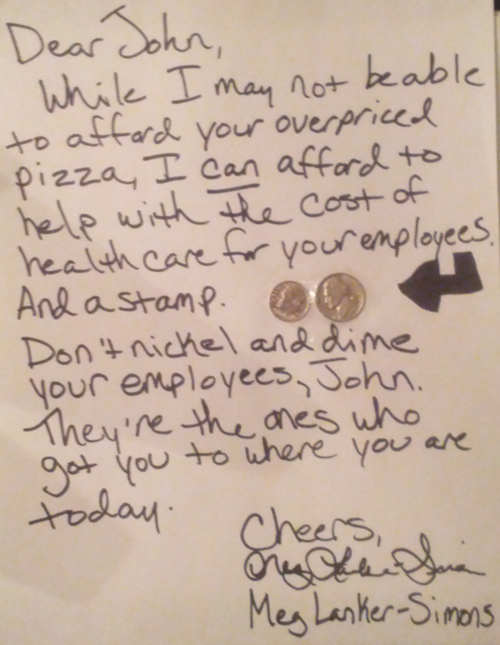 Dear John,
While I may not be able
to afford your overpriced
pizza, I can afford to
help with the cost of
healthcare for your employees.
And a stamp.
Don't nickel and dime
your employees, John.
They're the ones who
got you to where you are
today.
Cheers,
Meg Lanker-Simons
Meg Lanker-Simons